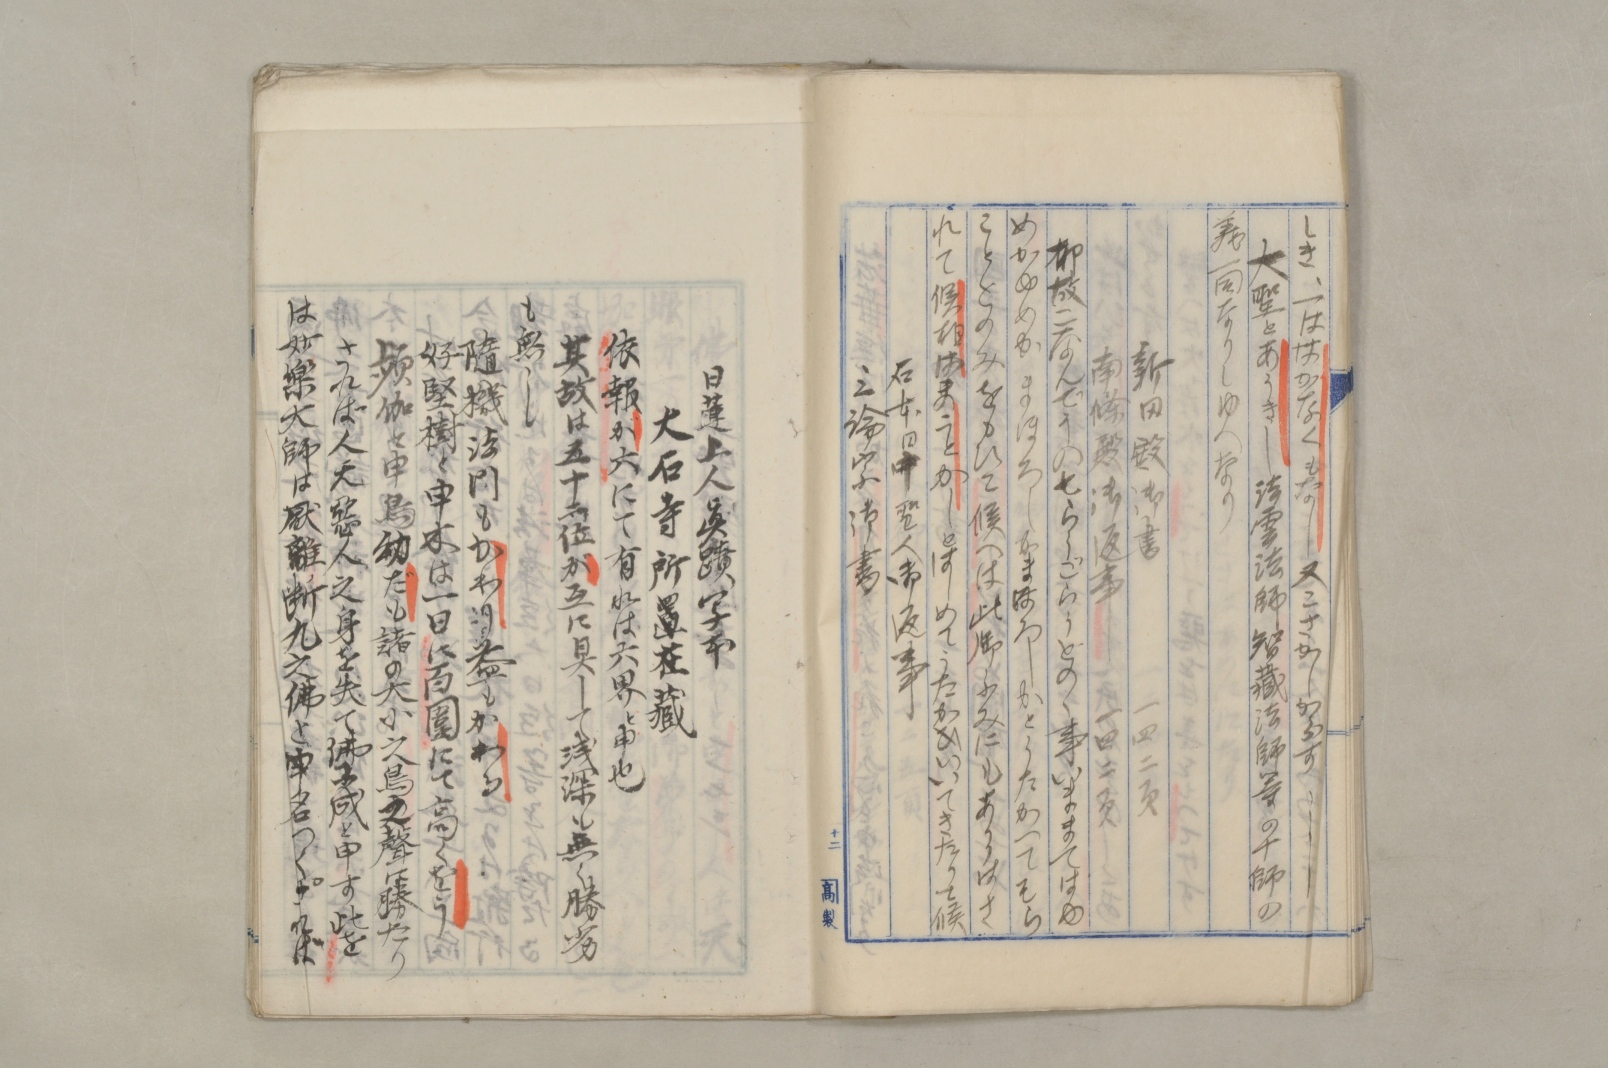 しき、一ははかなくもなし又こさかしからす
大聖とあうきし法雲法師智蔵法師等の十師の
義一同なりしゆへなり
新田殿御書 一四二頁
南條殿御返事 一四二頁
故二なんどうの七らうごらうどのゝ事いままてはゆ
めかゆめか まほろしかまほろしかとうたかつてもら
こととのみをもひて候へは此御ふみにもあそはさ
れて候
石本日仲聖人御返事
三論宗御書
十二
高製
日蓮上人眞蹟字本
大石寺所蓋在蔵
依報が六にて有れは六界と申也
其故は五十六位が互に具して浅深も無く勝劣
も無し
隨機法門もかわり得益もかわる
好堅樹と申木は一日に百圍にて高くをう
頻伽と申鳥幼だも諸の大小之鳥之聲に勝たり
されば人天悪人之身を失て佛に成と申す此を
は妙樂大師は厭離断九之佛と申名つくされば